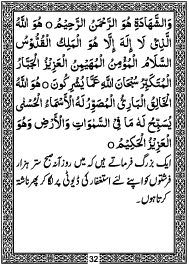 وَالشَّهَادَةِ هُوَ الرَّحْمٰنُ الرَّحِيْمُ ○ هُوَ اللّٰهُ
الَّذِىْ لَا إِلٰهَ إِلَّا هُوَ الْمَلِكُ الْقُدُّوْسُ
السَّلَامُ الْمُؤْمِنُ الْمُهَيْمِنُ الْعَزِيْزُ الْجَبَّارُ
الْمُتَكَبِّرُ سُبْحَانَ اللّٰهِ عَمَّا يُشْرِكُوْنَ ○ هُوَ اللّٰهُ
الْخَالِقُ الْبَارِئُ الْمُصَوِّرُ لَهُ الْأَسْمَاءُ الْحُسْنٰى
يُسَبِّحُ لَهُ مَا فِى السَّمٰوَاتِ وَالْأَرْضِ وَهُوَ
الْعَزِيْزُ الْحَكِيْمُ ○
ایک بزرگ فرماتے ہیں کہ میں روزآنہ صبح ستر ہزار
فرشتوں کو اپنے لئے استغفار کی ڈیوٹی پر لگا کر پھر ناشتہ
کرتا ہوں۔
32